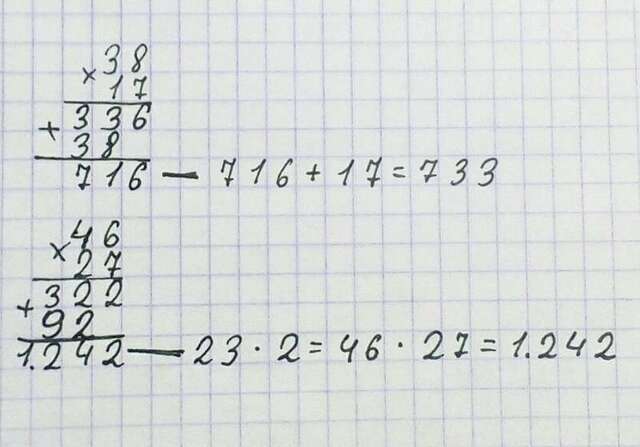 × 38
17
+ 336
38
716 — 716 + 17 = 733
× 46
27
+ 322
92
1.242 — 23 · 2 = 46 · 27 = 1.242